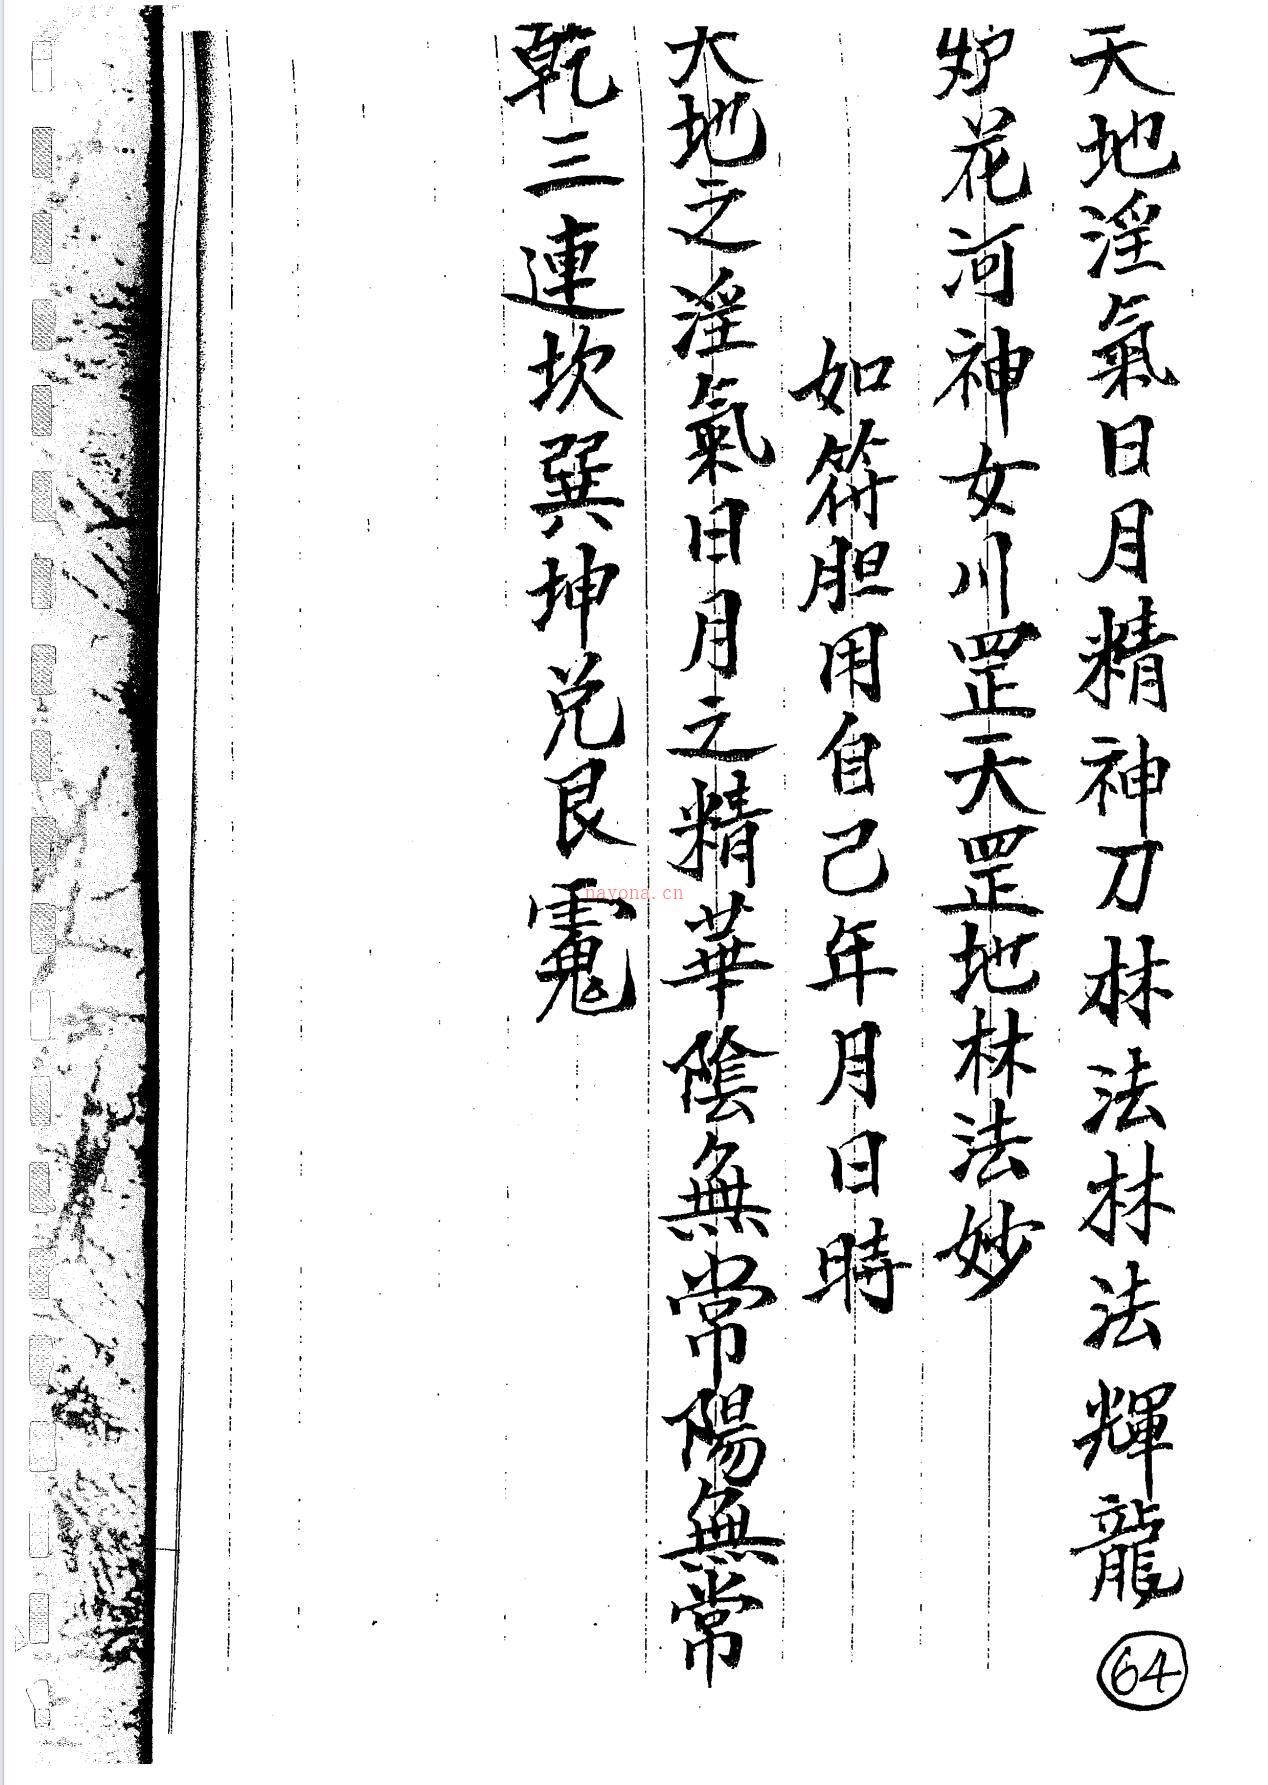 天地淫氣日月精神刀林法林法輝龍
炉花河神女川罡天罡地林法妙
如符胆用自己年月日時
大地之淫氣日月之精華陰無常陽無常
乾三連坎巽坤兑艮䨺
64
nayona.cn